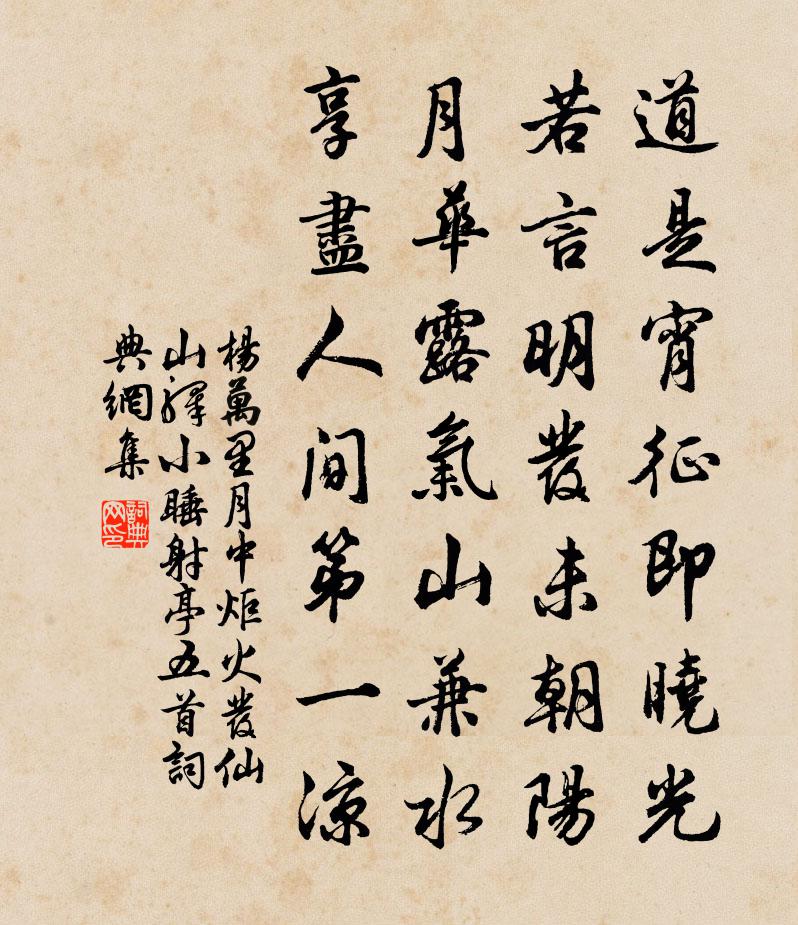 道是宵征即曉光
若言明發未朝陽
月華露氣山兼水
享盡人間第一涼
楊萬里月中炬火發仙
山驛小睡射亭五首詞
典網集
詞典網印